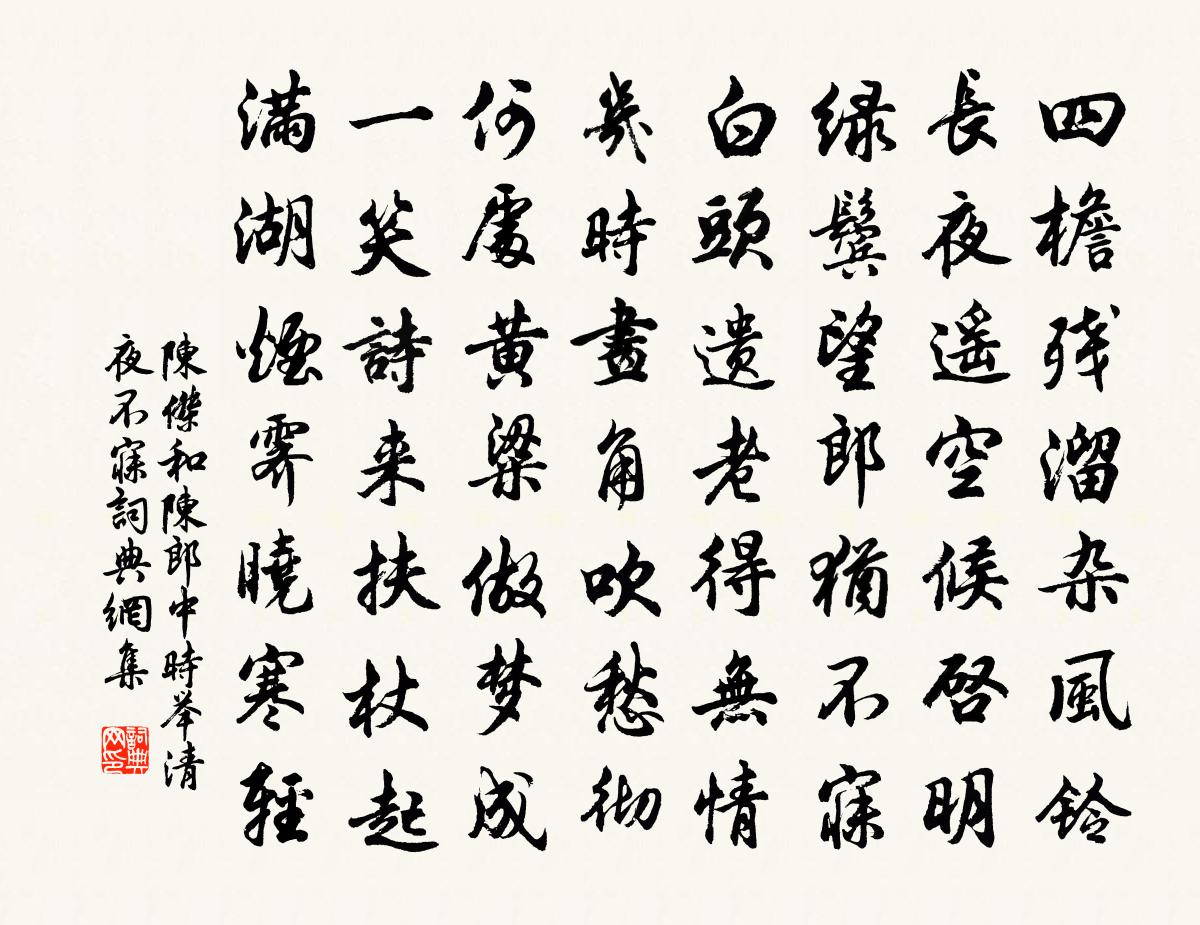 四檐残溜杂風鈴
長夜遥空候启明
緑鬓望郎猶不寐
白頭遗老得無情
幾時畫角吹愁彻
何處黄梁做梦成
一笑詩来扶杖起
满湖煙霁曉寒輕
陳傑和陳郎中時举清
夜不寐詞典網集
詞典网印